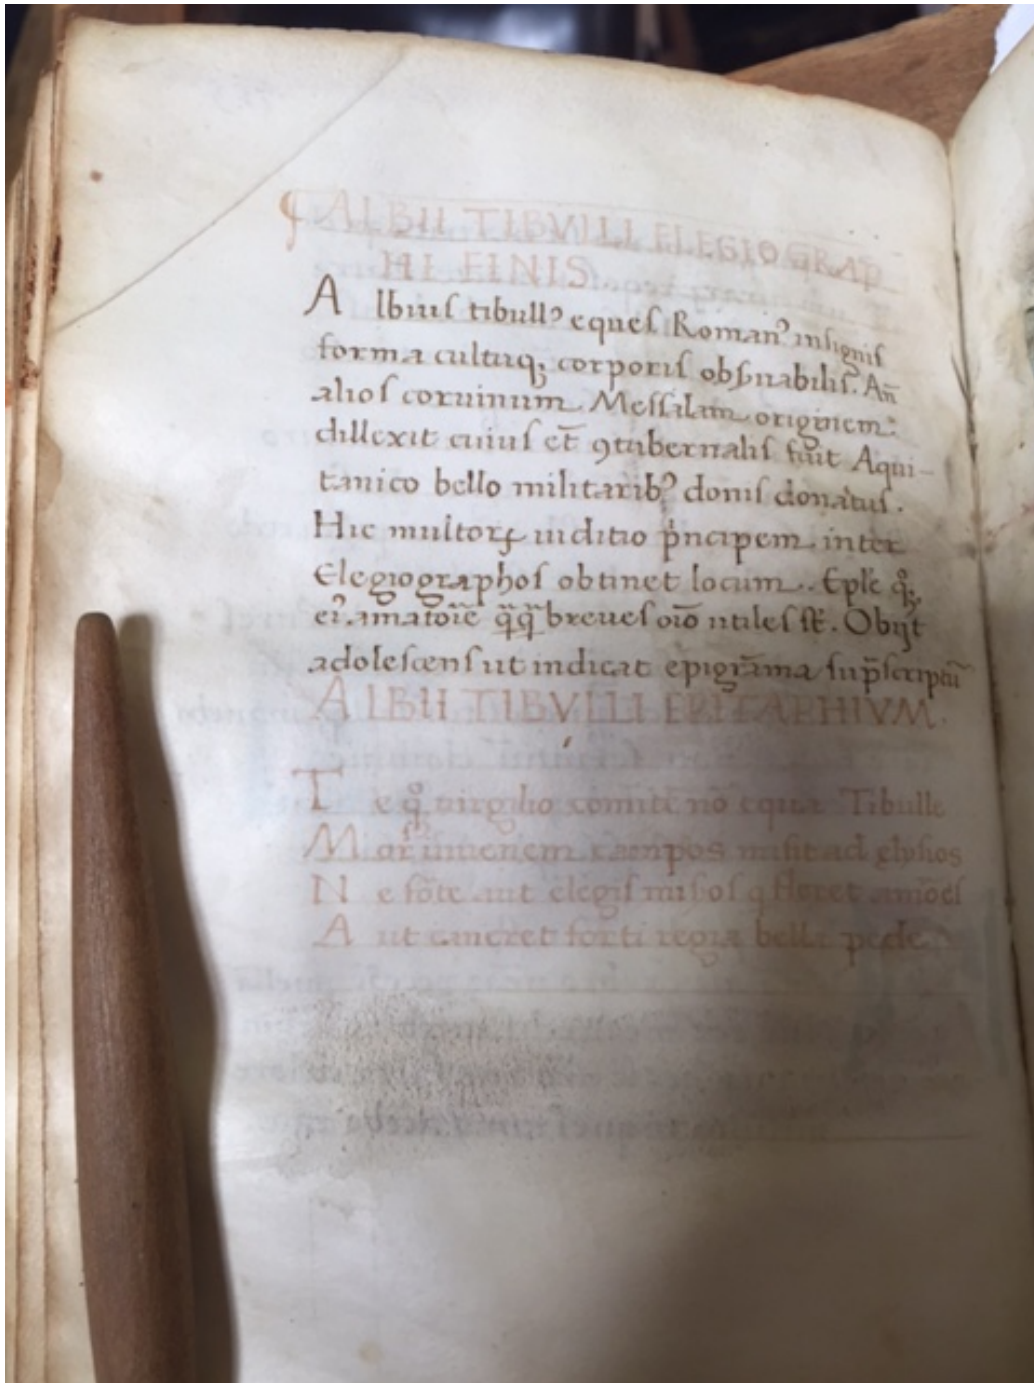 ALBII TIBVLLI ELEGIOGRAP̄
HI FINIS
Albius tibullꝰ eques Romanꝰ insignis
forma cultuqꝫ corporis obſꝰuabilis. An̄
alios coruinum Messalam originem
dillexit cuius et̄ ꝯtubernalis fuit Aqui-
tanico bello militaribꝰ donis donatus.
Hic multoꝝ iuditio p̄ncipem inter
Elegiographos obtinet locum. Eplē qꝫ
eiꝰ amatorie q̄q̄ breues oīo utiles st̄. Obijt
adolescens ut indicat epigrāma sup̄scriptū
ALBII TIBVLLI EPITAPHIVM.
Te qͦꝫ virgilio comitē nō equa Tibulle
Mors iuuenem campos misit ad elysios
Ne fōret aut elegis molles q fleret amōes
Aut caneret forti regia bella pede